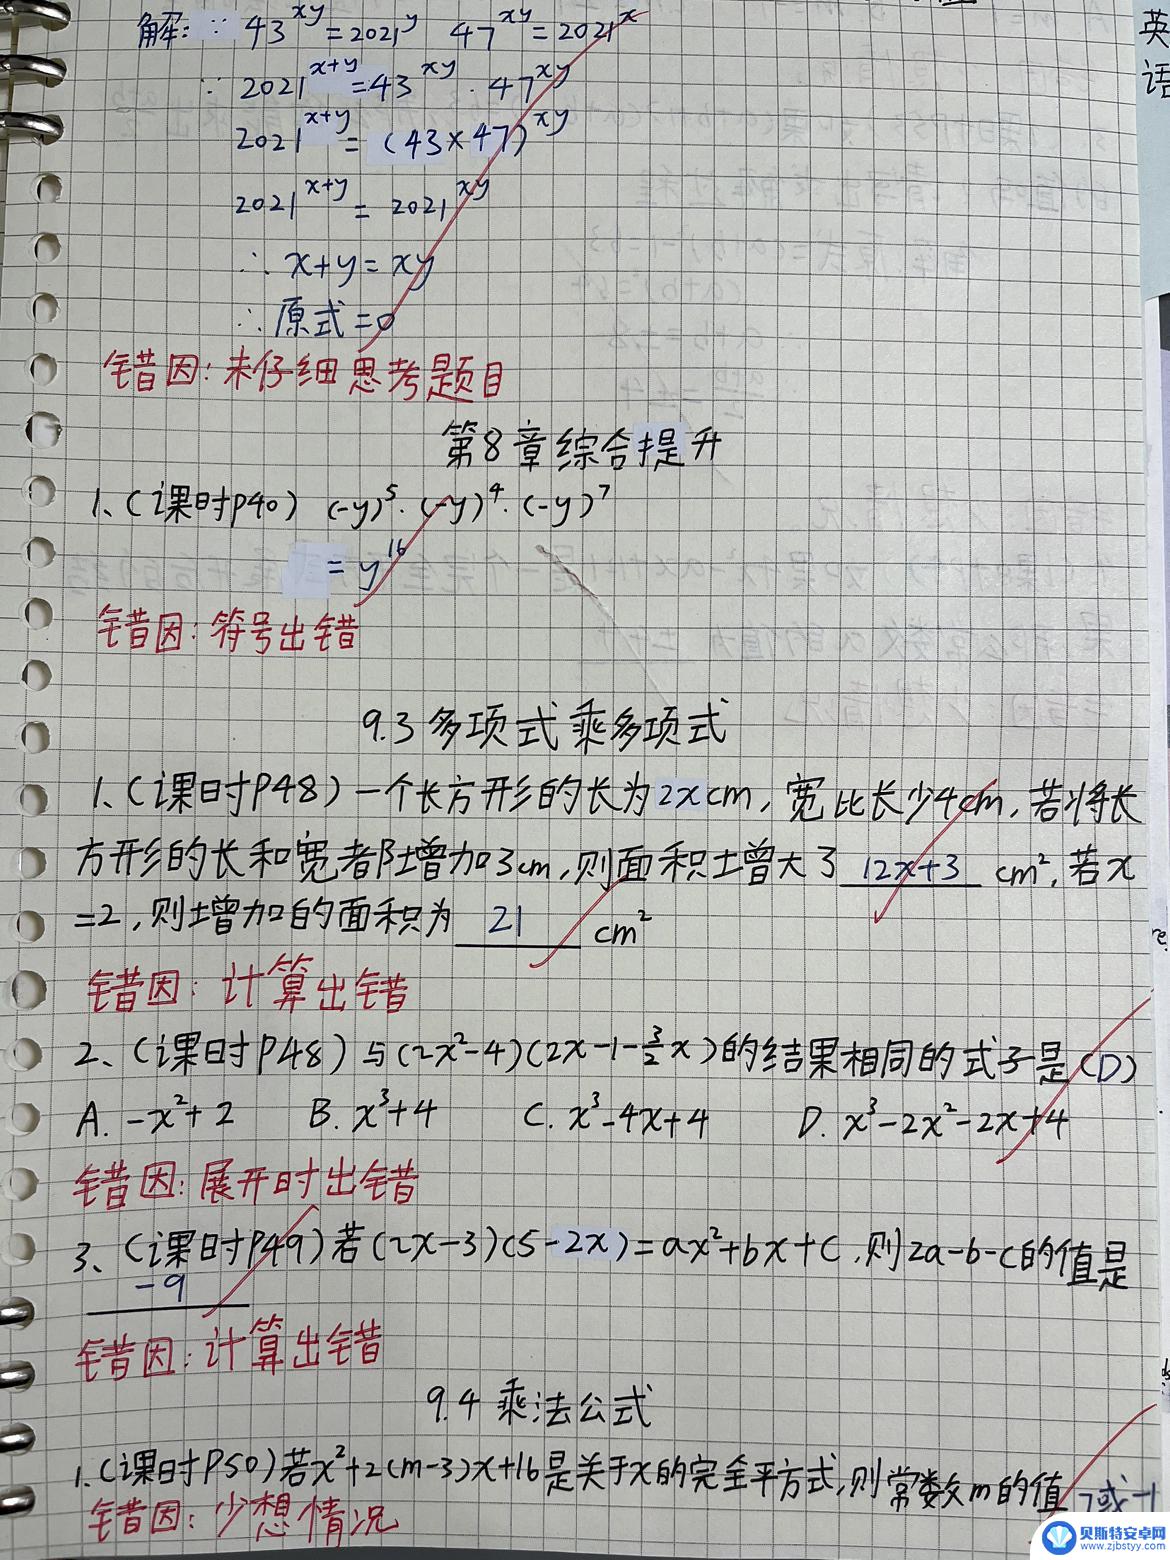 解:∵ 43^xy = 2021^y 47^xy = 2021^x
∵ 2021^x+y = 43^xy · 47^xy
2021^x+y = (43×47)^xy
2021^x+y = 2021^xy
∴ x+y = xy
∴ 原式=0
错因:未仔细思考题目
第8章综合提升
1、(课时P40) (-y)^5·(-y)^4·(-y)^7
= y^16
错因:符号出错
9.3 多项式乘多项式
1、(课时P48)一个长方形的长为2xcm,宽比长少4cm,若将长
方形的长和宽都增加3cm,则面积增大了 12x+3 cm²,若x
=2,则增加的面积为 21 cm²
错因:计算出错
2、(课时P48)与(2x²-4)(2x-1-3/2x)的结果相同的式子是(D)
A. -x²+2 B. x³+4 C. x³-4x+4 D. x³-2x²-2x+4
错因:展开时出错
3、(课时P49)若(2x-3)(5-2x)=ax²+bx+c,则2a-b-c的值是
-9
错因:计算出错
9.4 乘法公式
1.(课时P50)若x²+2(m-3)x+16是关于x的完全平方式,则常数m的值 7或-1
错因:少想情况
英
语
贝斯特安卓网
www.zjbstyy.com